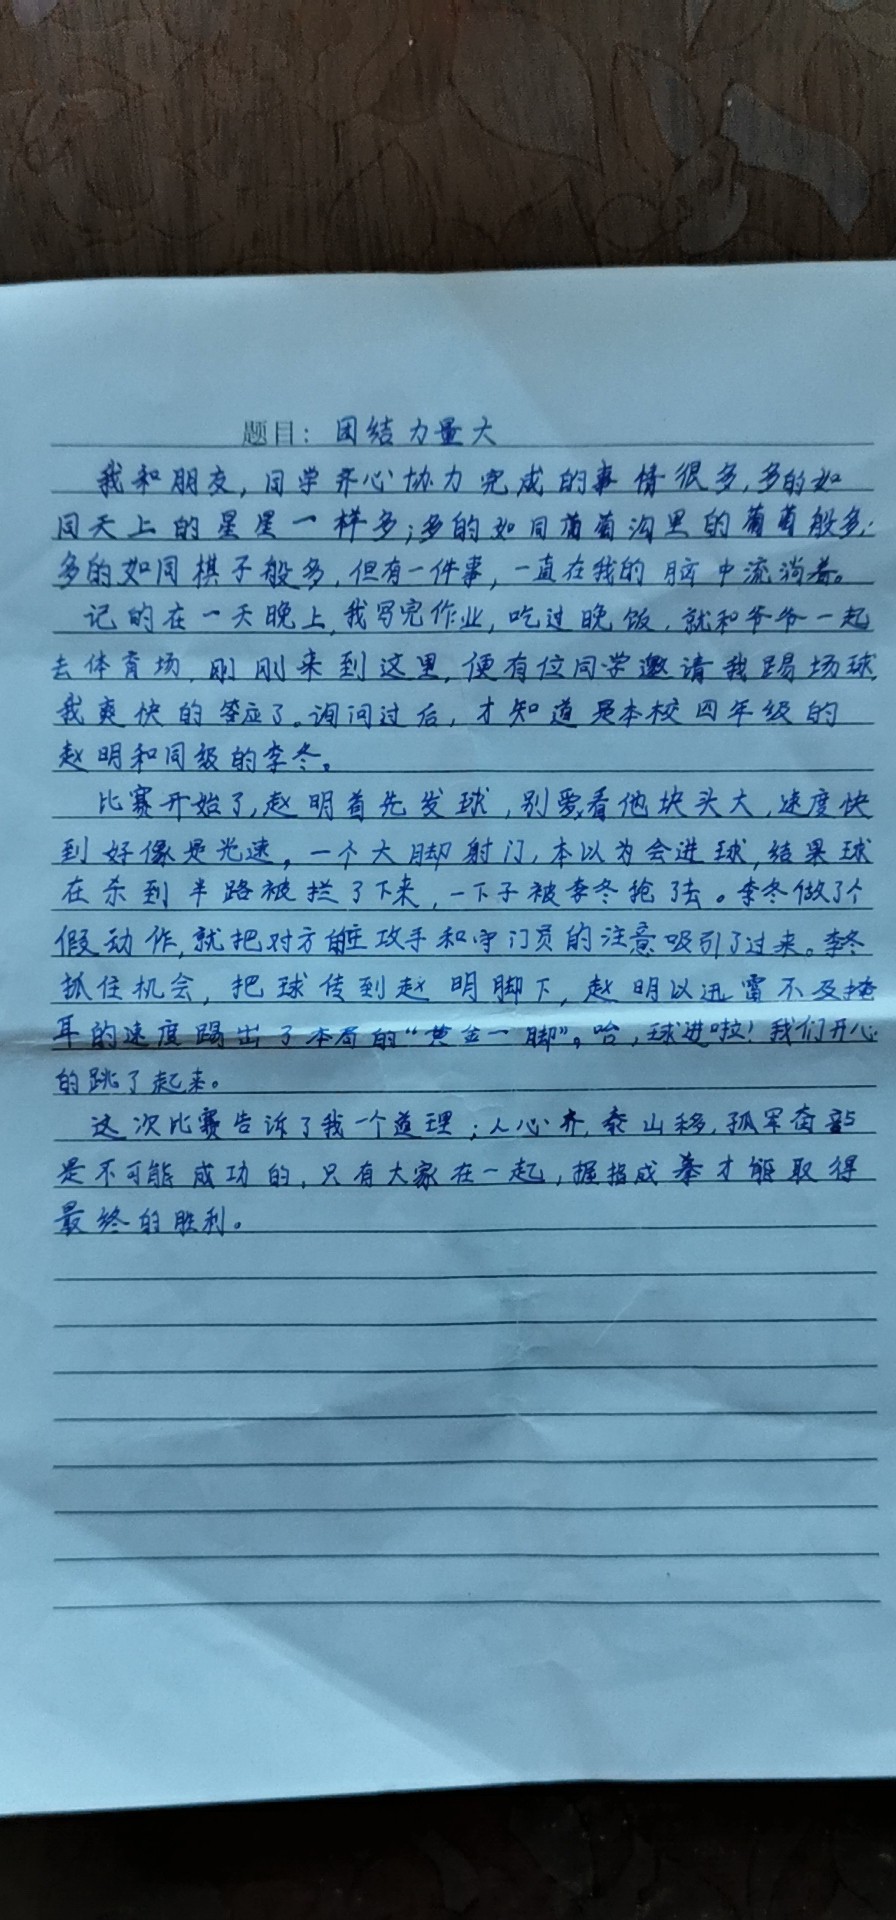 题目：团结力量大
我和朋友，同学齐心协力完成的事情很多，多的如
同天上的星星一样多；多的如同葡萄沟里的葡萄般多；
多的如同棋子般多，但有一件事，一直在我的脑中流淌着。
记的在一天晚上，我写完作业，吃过晚饭，就和爷爷一起
去体育场，刚刚来到这里，便有位同学邀请我踢场球，
我爽快的答应了。询问过后，才知道是本校四年级的
赵明和同级的李冬。
比赛开始了，赵明首先发球，别看他块头大，速度快
到好像是光速，一个大脚射门，本以为会进球，结果球
在杀到半路被拦了下来，一下子被李冬抢了去。李冬做了个
假动作，就把对方攻手和守门员的注意吸引了过来。李冬
抓住机会，把球传到赵明脚下，赵明以迅雷不及掩
耳的速度踢出了本局的“黄金一脚”。哈，球进啦！我们开心
的跳了起来。
这次比赛告诉了我一个道理；人心齐，泰山移，孤军奋
是不可能成功的，只有大家在一起，握指成拳才能取得
最终的胜利。